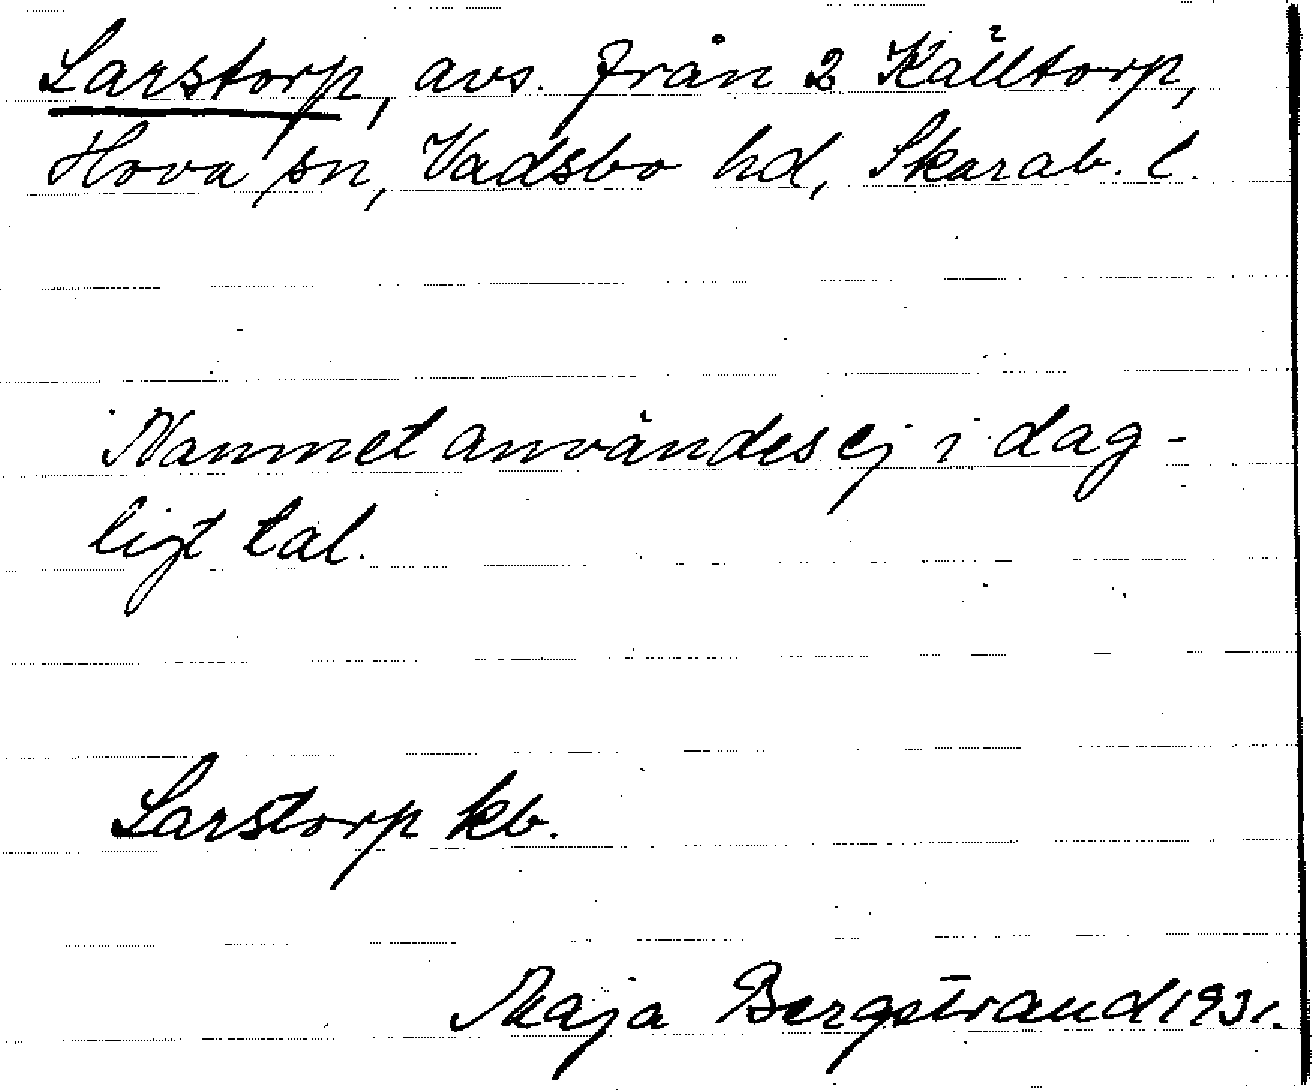 Larstorp, avs. från 2 Källtorp,
Hova sn, Vadsbo hd, Skarab. l.
Namnet användes ej i dag-
ligt tal.
Larstorp kb.
Maja Bergstrand 1931.